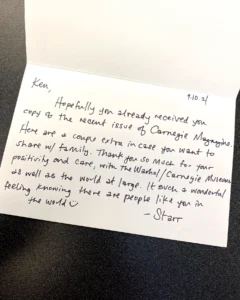 9.10.21
Ken,
Hopefully you already received you
copy of the recent issue of Carnegie Magazine.
Here are a couple extra in case you want to
share w/ family. Thank you so much for your
positivity and care, with the Warhol/Carnegie Museums
as well as the world at large. It such a wonderful
feeling knowing there are people like you in
the world
- Starr